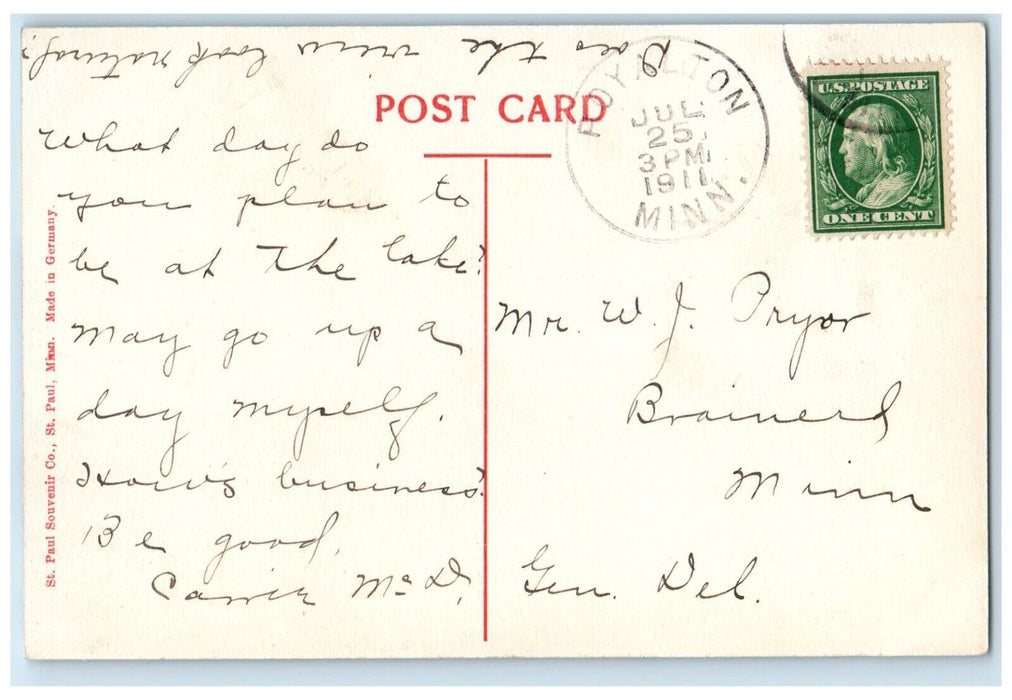 Does the view look natural?
POST CARD
ROYALTON
JUL
25
3 PM
1911
MINN.
U.S. POSTAGE
ONE CENT
What day do
you plan to
be at the lake?
May go up a
day myself.
How's business?
Be good.
Carrie McD.
Mr. W. J. Pryor
Brainerd
Minn
Gen. Del.
St. Paul Souvenir Co., St. Paul, Minn. Made in Germany.